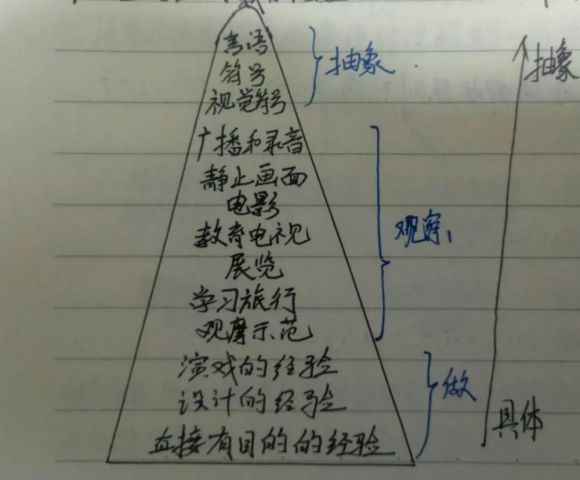 言语
符号
视觉符号
抽象
抽象
广播和录音
静止画面
电影
教育电视
展览
学习旅行
观摩示范
观察
演戏的经验
设计的经验
直接有目的的经验
做
具体